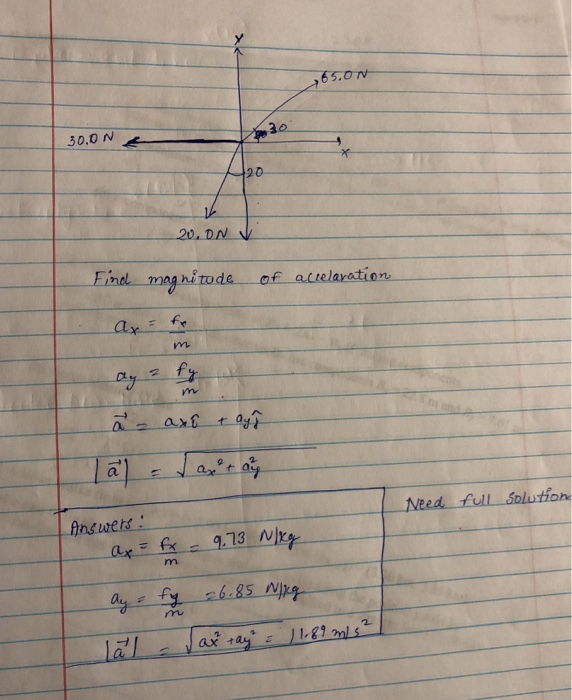 Y
65.0N
30.0 N
30
x
20
20.0N
Find magnitude of accelaration
ax = fx/m
ay = fy/m
a⃗ = axî + ayĵ
|a⃗| = √ax²+ ay²
Need full solution
Answers:
ax = fx/m = 9.73 N/kg
ay = fy/m = 6.85 N/kg
|a⃗| = √ax² + ay² = 11.89 m/s²